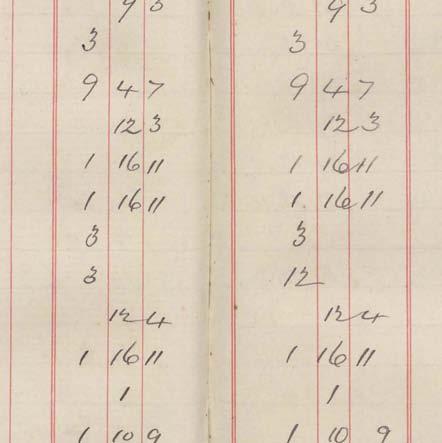 9 3 9 3
3 3
9 4 7 9 4 7
12 3 12 3
1 16 11 1 16 11
1 16 11 1 16 11
3 3
3 12
12 4 12 4
1 16 11 1 16 11
1 1
1 10 9 1 10 9